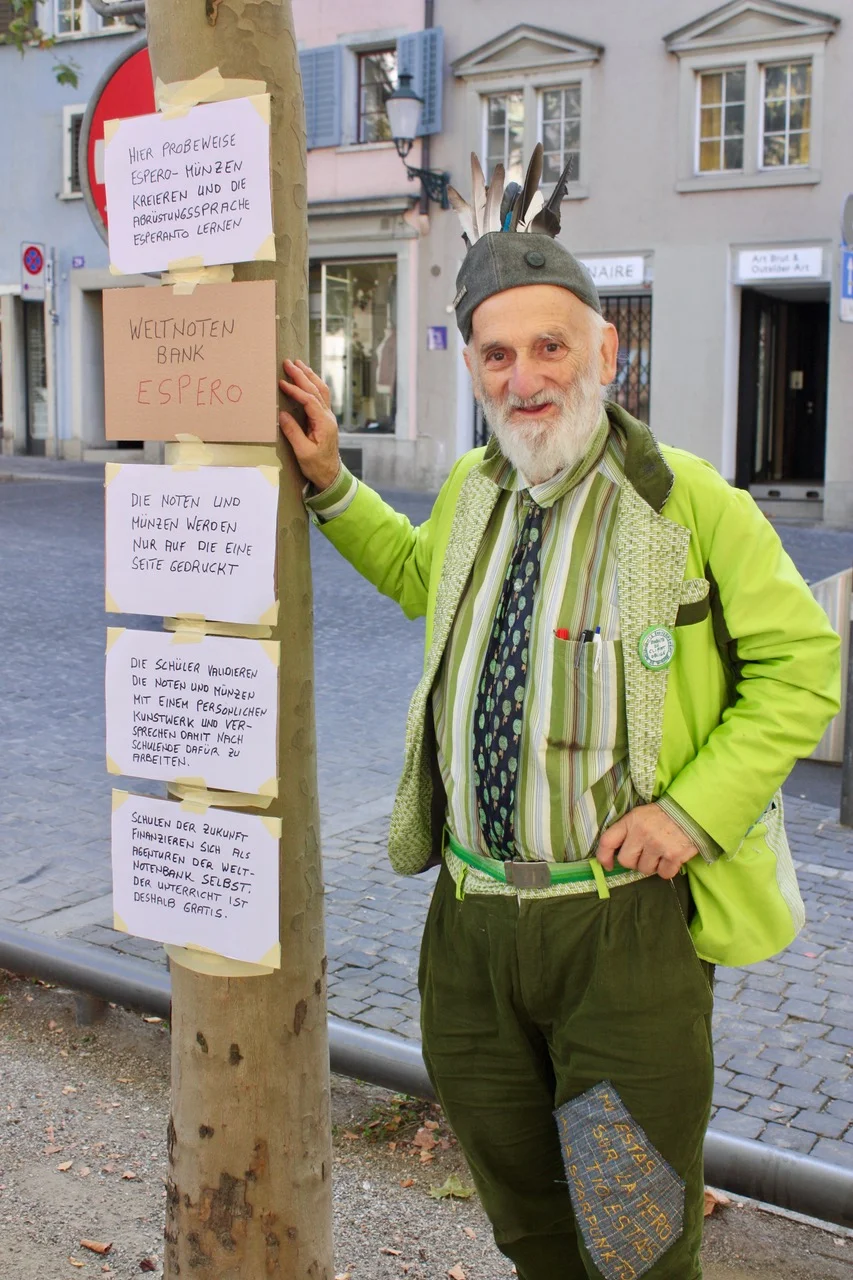 HIER PROBEWEISE
ESPERO-MÜNZEN
KREIEREN UND DIE
ABRÜSTUNGSSPRACHE
ESPERANTO LERNEN
WELTNOTEN
BANK
ESPERO
DIE NOTEN UND
MÜNZEN WERDEN
NUR AUF DIE EINE
SEITE GEDRUCKT
DIE SCHÜLER VALIDIEREN
DIE NOTEN UND MÜNZEN
MIT EINEM PERSÖNLICHEN
KUNSTWERK UND VER-
SPRECHEN DAMIT NACH
SCHULENDE DAFÜR ZU
ARBEITEN.
SCHULEN DER ZUKUNFT
FINANZIEREN SICH ALS
AGENTUREN DER WELT-
NOTENBANK SELBST.
DER UNTERRICHT IST
DESHALB GRATIS.
NAIRE
Art Brut &
Outsider Art
ESTAS
SUR LA TERO
TIO ESTAS